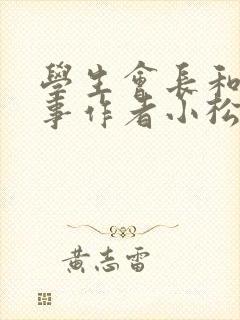 學生會長和
事作者小松
黃志雷